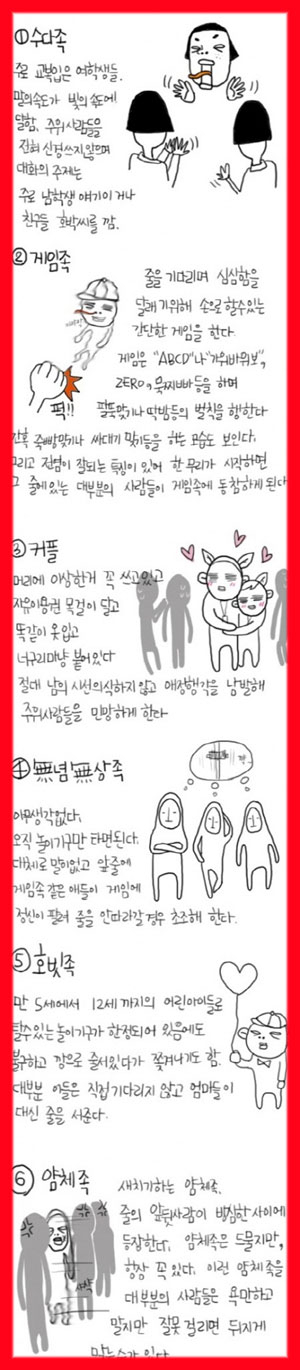 ①수다족
주로 교복입은 여학생들.
말의속도가 빛의 속도에!
달함. 주위사람들을
전혀 신경쓰지않으며
대화의 주제는
주로 남학생 얘기이거나
친구들 호박씨를 깜.
② 게임족
줄을 기다리며 심심함을
달래기위해 손으로 할수있는
간단한 게임을 한다.
게임은 "ABCD"나 "가위바위보",
ZERO, 묵찌빠 등을 하며
퍽!!
팔뚝맞기나 딱밤등의 벌칙을 행한다
간혹 죽빵맞기나 싸대기 맞기등을 하는 모습도 보인다.
그리고 전염이 잘되는 특징이 있어 한 무리가 시작하면
그 줄에있는 대부분의 사람들이 게임족에 동참하게 된다
③ 커플
머리에 이상한거 꼭 쓰고있고
자유이용권 목걸이 달고
똑같이 옷입고
너구리마냥 붙어있다
절대 남의 시선의식하지않고 애정행각을 남발해
주위사람들을 민망하게 한다
④ 無념無상족
아무생각없다.
오직 놀이기구만 타면된다.
대체로 말이없고 앞줄에
게임족 같은 애들이 게임에
정신이 팔려 줄을 안따라갈 경우 초조해 한다.
⑤ 호빗족
만 5세에서 12세 까지의 어린아이들로
탈수있는 놀이기구가 한정되어 있음에도
불구하고 깡으로 줄서있다가 쫓겨나기도 함.
대부분 아들은 직접 기다리지 않고 엄마들이
대신 줄을 서준다.
⑥ 얌체족
새치기하는 얌체족.
줄의 앞뒷사람이 방심한 사이에
등장한다. 얌체족은 드물지만,
항상 꼭 있다. 이런 얌체족을
대부분의 사람들은 욕만하고
말지만 잘못 걸리면 뒤지게
맞는수가 있다